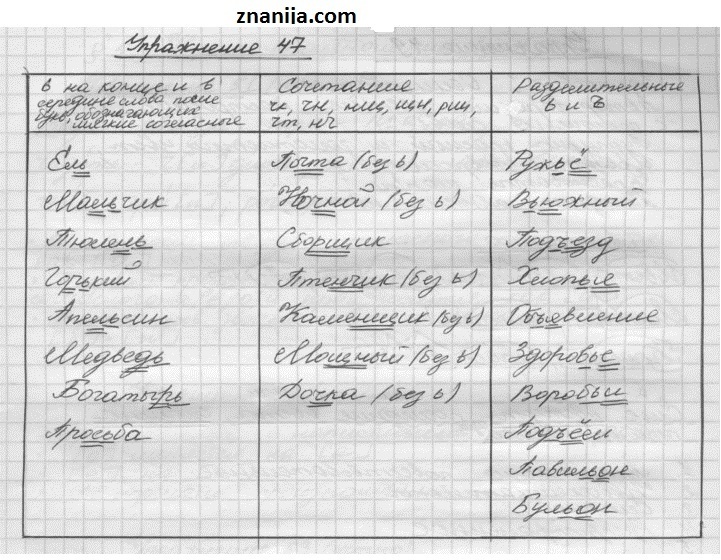 znanija.com
Упражнение 47
ь на конце и в
середине слова после
букв, обозначающих
мягкие согласные
Сочетание
чк, чн, нщ, щн, рщ,
чт, нч
Разделительные
ь и ъ
Ель
Мальчик
Тюлень
Горький
Апельсин
Медведь
Богатырь
Просьба
Почта (без ь)
Ночной (без ь)
Сборщик
Птенчик (без ь)
Каменщик (без ь)
Мощный (без ь)
Дочка (без ь)
Ружьё
Вьюжный
Подъезд
Хлопья
Объявление
Здоровье
Воробьи
Подъём
Павильон
Бульон